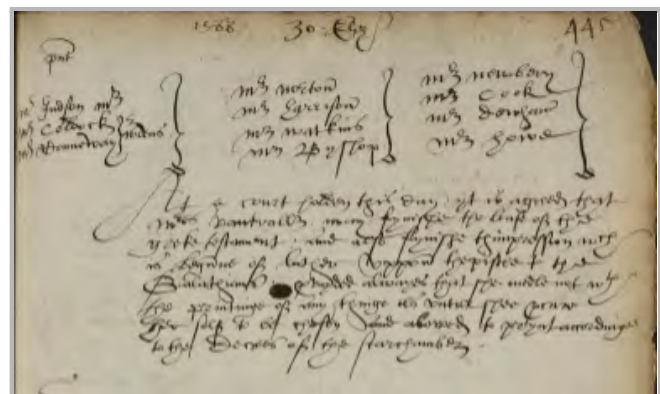 1588 30 Eliz 445
pnt
mr Judson mr
mr Coldock
mr Conneway } wardens
mr norton
mr harrison
mr watkins
mr Byshop
mr newbery
mr Cook
mr denham
mr howe
At a court holden this day yt is agreed that
mrs vautroller may fynishe the leaf of the
greek testament and also fynishe thimpression wch
is begonne of luther uppon thepistle to the
Galathians provided alwaies that she medle not wth
the printinge of any thinge els untill shee procure
her self to be chosen and alowed to prynt accordinge
to the Decrees of the starchamber.